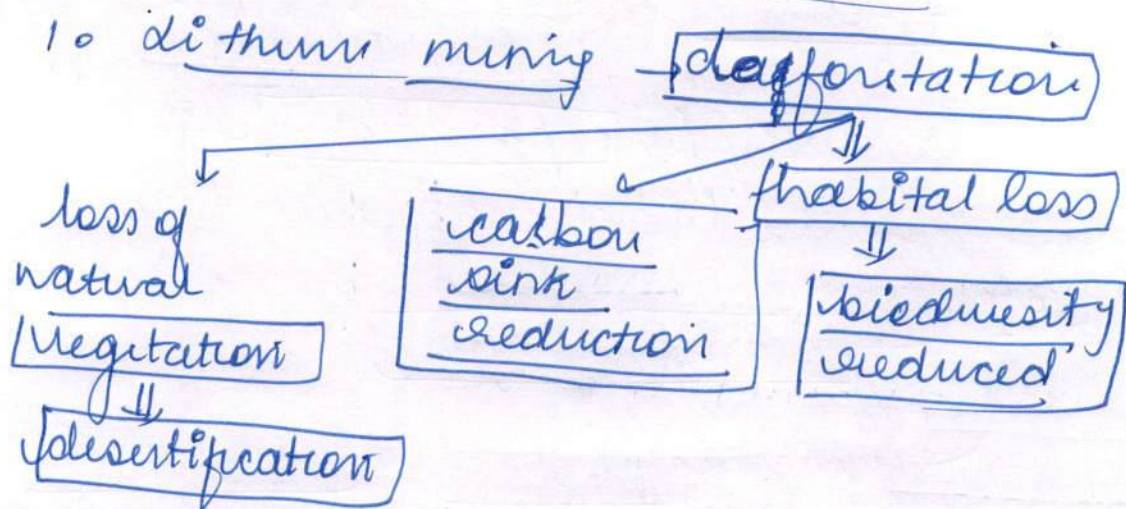 1. Lithium mining deforestation
loss of
natural
vegitation
desertification
carbon
sink
reduction
habital loss
biodiversity
reduced